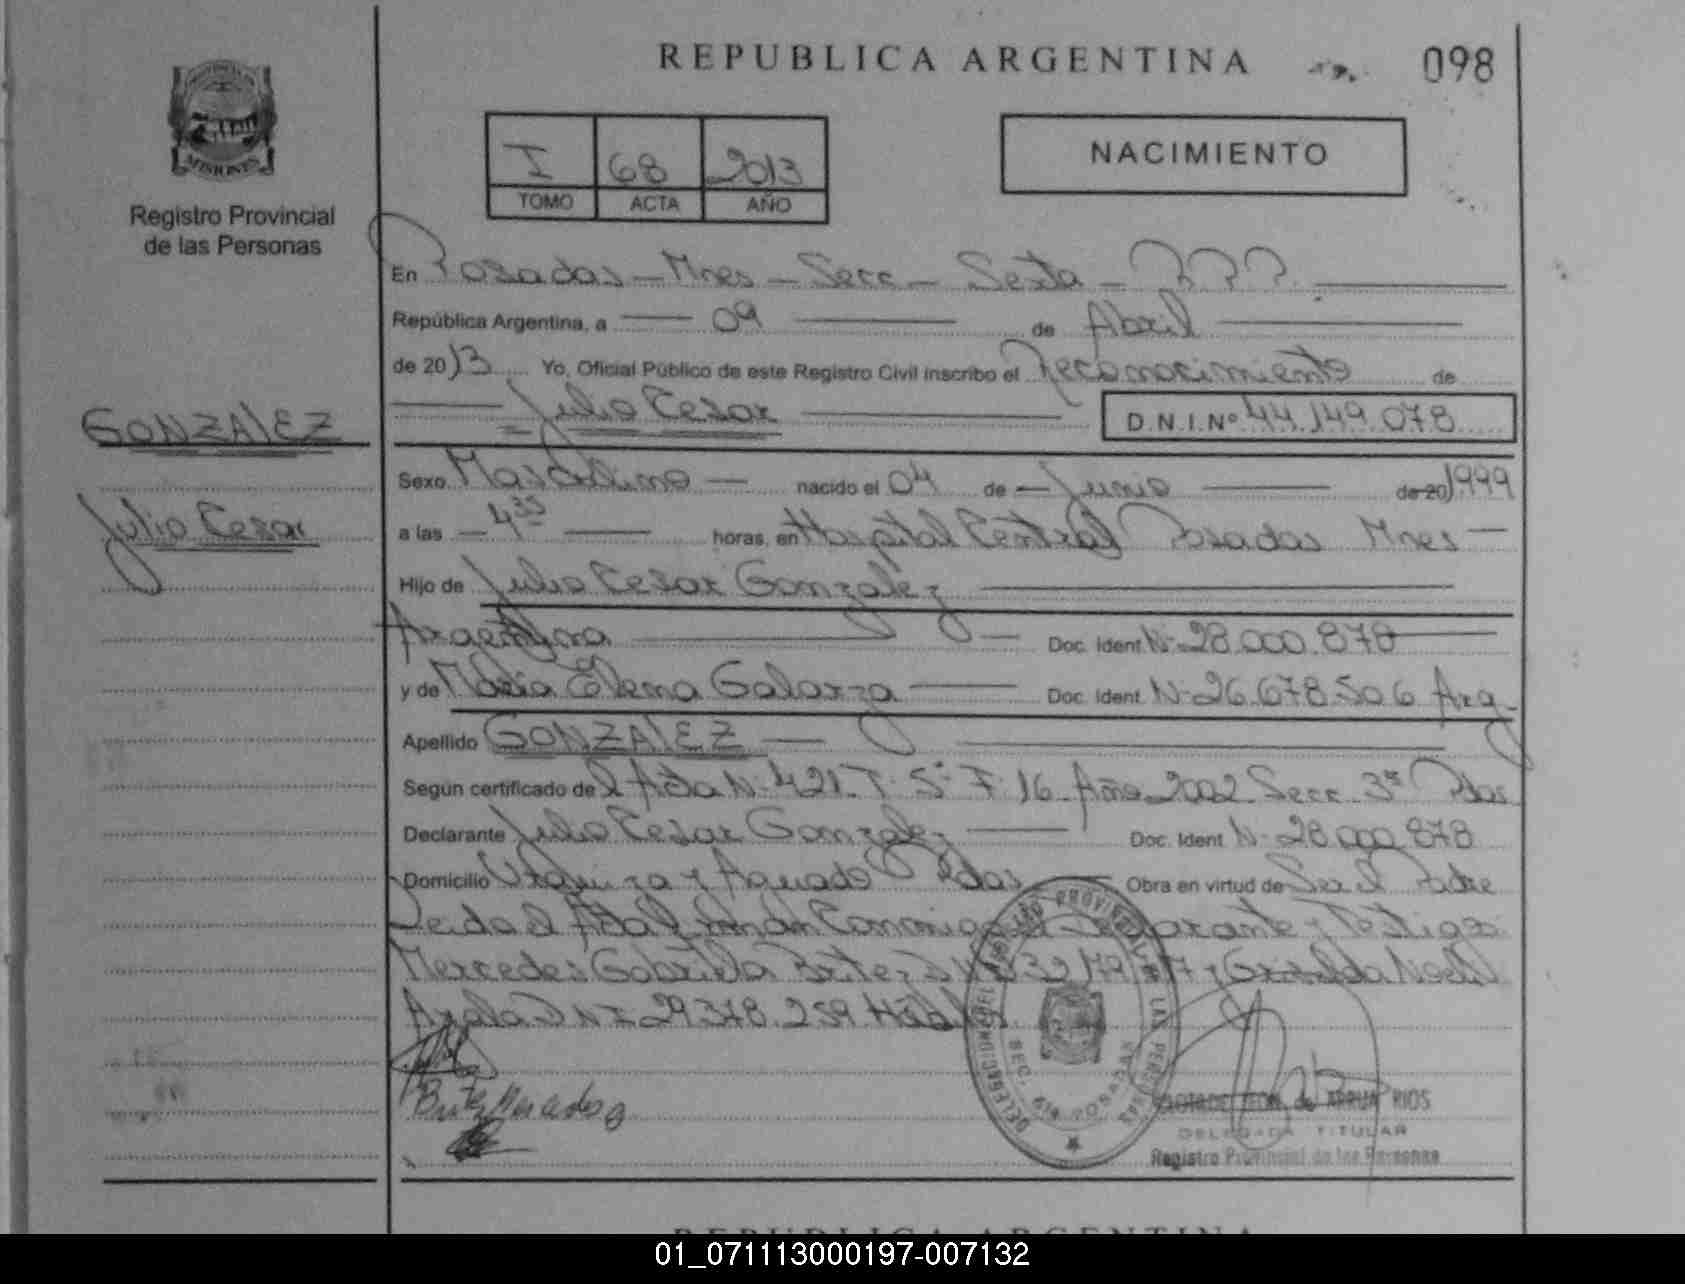 REPUBLICA ARGENTINA
098
PROVINCIA DE
MISIONES
Registro Provincial
de las Personas
I 68 2013
TOMO ACTA AÑO
NACIMIENTO
En Posadas - Mnes - Secc - Sexta - R.P.P.
República Argentina, a 09 de Abril
de 2013 Yo, Oficial Público de este Registro Civil inscribo el Reconocimiento de
Julio Cesar D.N.I.Nº 44.149.078
GONZALEZ
Julio Cesar
Sexo Masculino nacido el 04 de Junio de 20 1999
a las 4 35 horas, en Hospital Central Posadas Mnes
Hijo de Julio Cesar Gonzalez
Argentina Doc. Ident. N- 28.000.878
y de Maria Elena Galarza Doc. Ident. N- 26.678.506 Arg
Apellido GONZALEZ
Según certificado de el Acta N- 421 T- 5º F- 16 Año 2002 Secc 3ª Pdas
Declarante Julio Cesar Gonzalez Doc. Ident. N- 28.000.878
Domicilio Urquiza y Aguado Pdas Obra en virtud de Ser el Padre
Leida el Acta firman Conmigo el Declarante y Testigos
Mercedes Gabriela Britez DNI 32 y Griselda Noeli
Ayala DNI 29.378.259
Britez Mercedes G
DELEGACION DEL REGISTRO PROVINCIAL DE LAS PERSONAS
SEC. 6ta POSADAS
de ARRUA RIOS
DELEGADA TITULAR
Registro Provincial de las Personas
REPUBLICA ARGENTINA
01_071113000197-007132